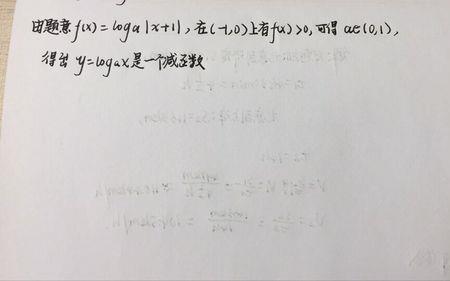 由题意f(x)=loga|x+1|,在(-1,0)上有f(x)>0,可得a∈(0,1),
得出y=logax是一个减函数